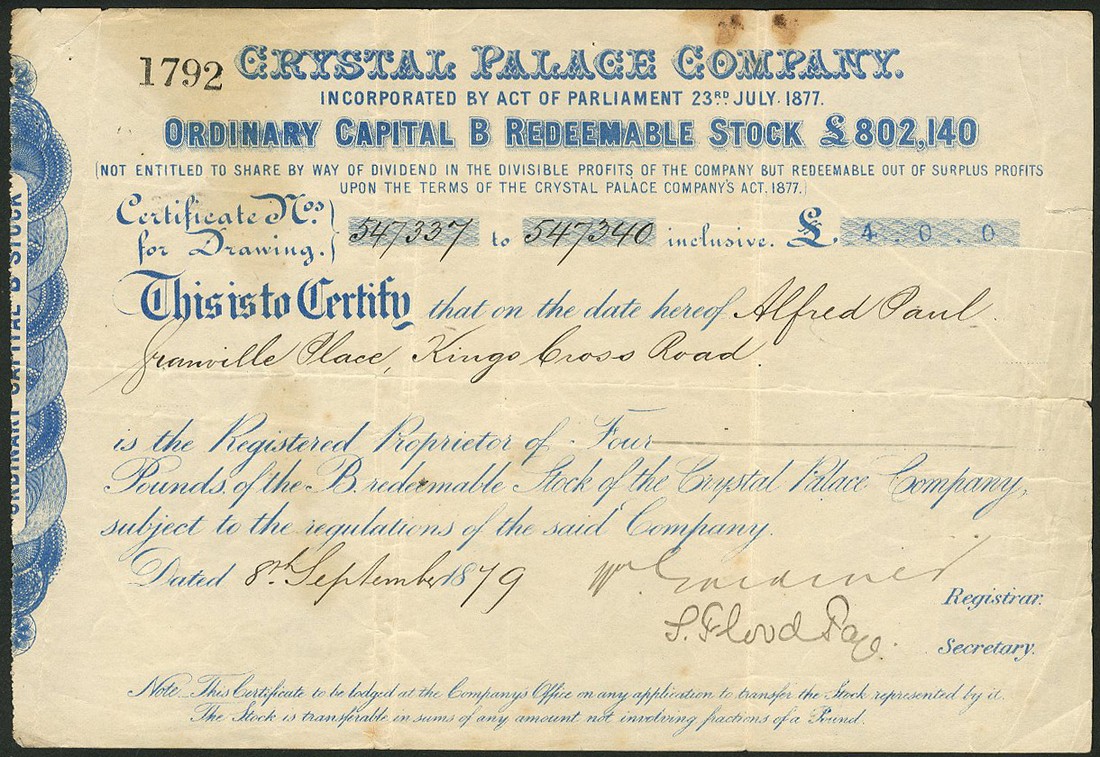 1792 CRYSTAL PALACE COMPANY.
INCORPORATED BY ACT OF PARLIAMENT 23RD JULY. 1877.
ORDINARY CAPITAL B REDEEMABLE STOCK £802,140
(NOT ENTITLED TO SHARE BY WAY OF DIVIDEND IN THE DIVISIBLE PROFITS OF THE COMPANY BUT REDEEMABLE OUT OF SURPLUS PROFITS
UPON THE TERMS OF THE CRYSTAL PALACE COMPANY'S ACT. 1877.)
Certificate Nos
for Drawing. } 547337 to 547340 inclusive. £ 4.0.0
This is to Certify that on the date hereof Alfred Paul
Granville Place, Kings Cross Road
is the Registered Proprietor of Four
Pounds, of the B. redeemable Stock of the Crystal Palace Company,
subject to the regulations of the said Company.
Dated 8th September 1879
Registrar.
S. Flood Secretary.
Note. This Certificate to be lodged at the Company's Office on any application to transfer the Stock represented by it.
The Stock is transferable in sums of any amount not involving fractions of a Pound.
ORDINARY CAPITAL B STOCK